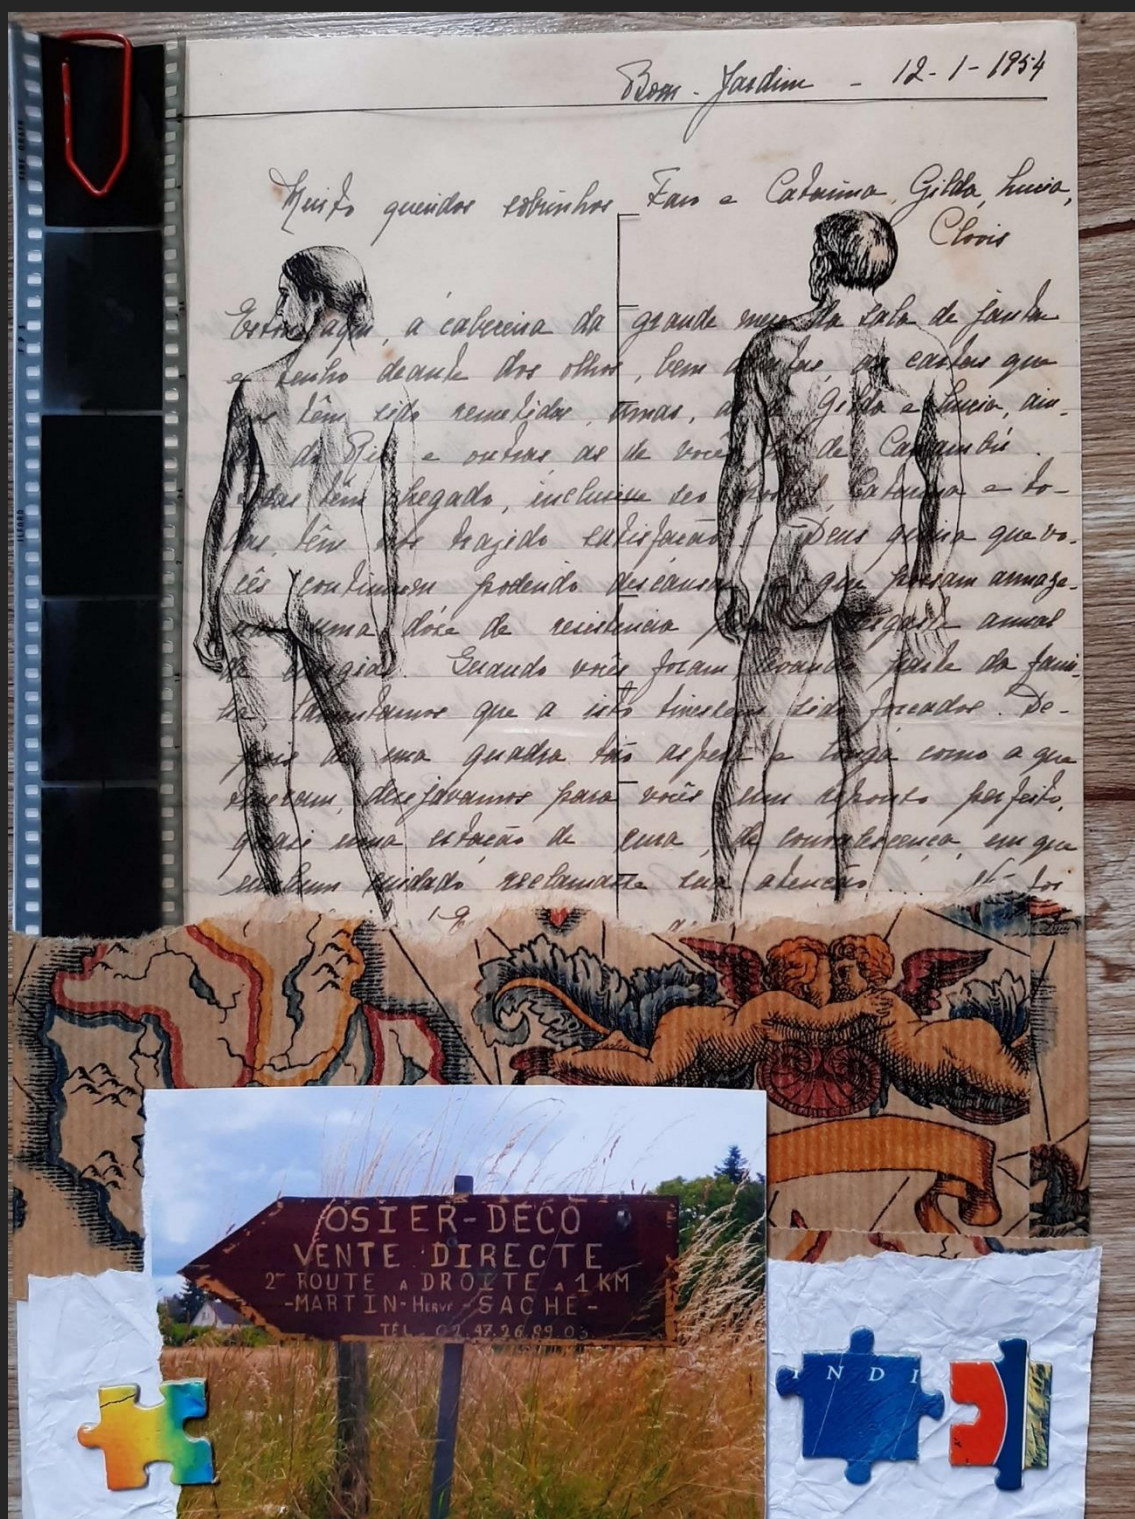 Bom-Jardim - 12-1-1954
Muito queridos sobrinhos Faro e Catarina, Gilda, Lucia,
Clovis
Estou aqui, á cabeceira da grande mesa da sala de janta
e tenho deante dos olhos, bem abertas, as cartas que
nos têm sido remetidas, umas, as de Gilda e Lucia, ain-
da do Rio e outras as de você, de Caxambú.
Todas têm chegado, inclusive seo postal, Catarina e to-
das, têm nos trazido satisfação. Deus queira que vo-
cês continuem podendo descançar e que possam armaze-
nar uma dóse de resistencia para o desgaste annual
de energias. Quando vocês foram, levando parte da fami-
lia lamentamos que a isto tivessem sido forçados. De-
pois de uma quadra tão aspera e longa como a que
tiveram, desejavamos para vocês um repouso perfeito,
quasi uma estação de cura, de convalescença, em que
nenhum cuidado reclamasse sua atenção...
OSIER-DÉCO
VENTE DIRECTE
2e ROUTE A DROITE A 1 KM
-MARTIN-HERVÉ-SACHÉ-
TEL. 02.47.26.89.03
INDI